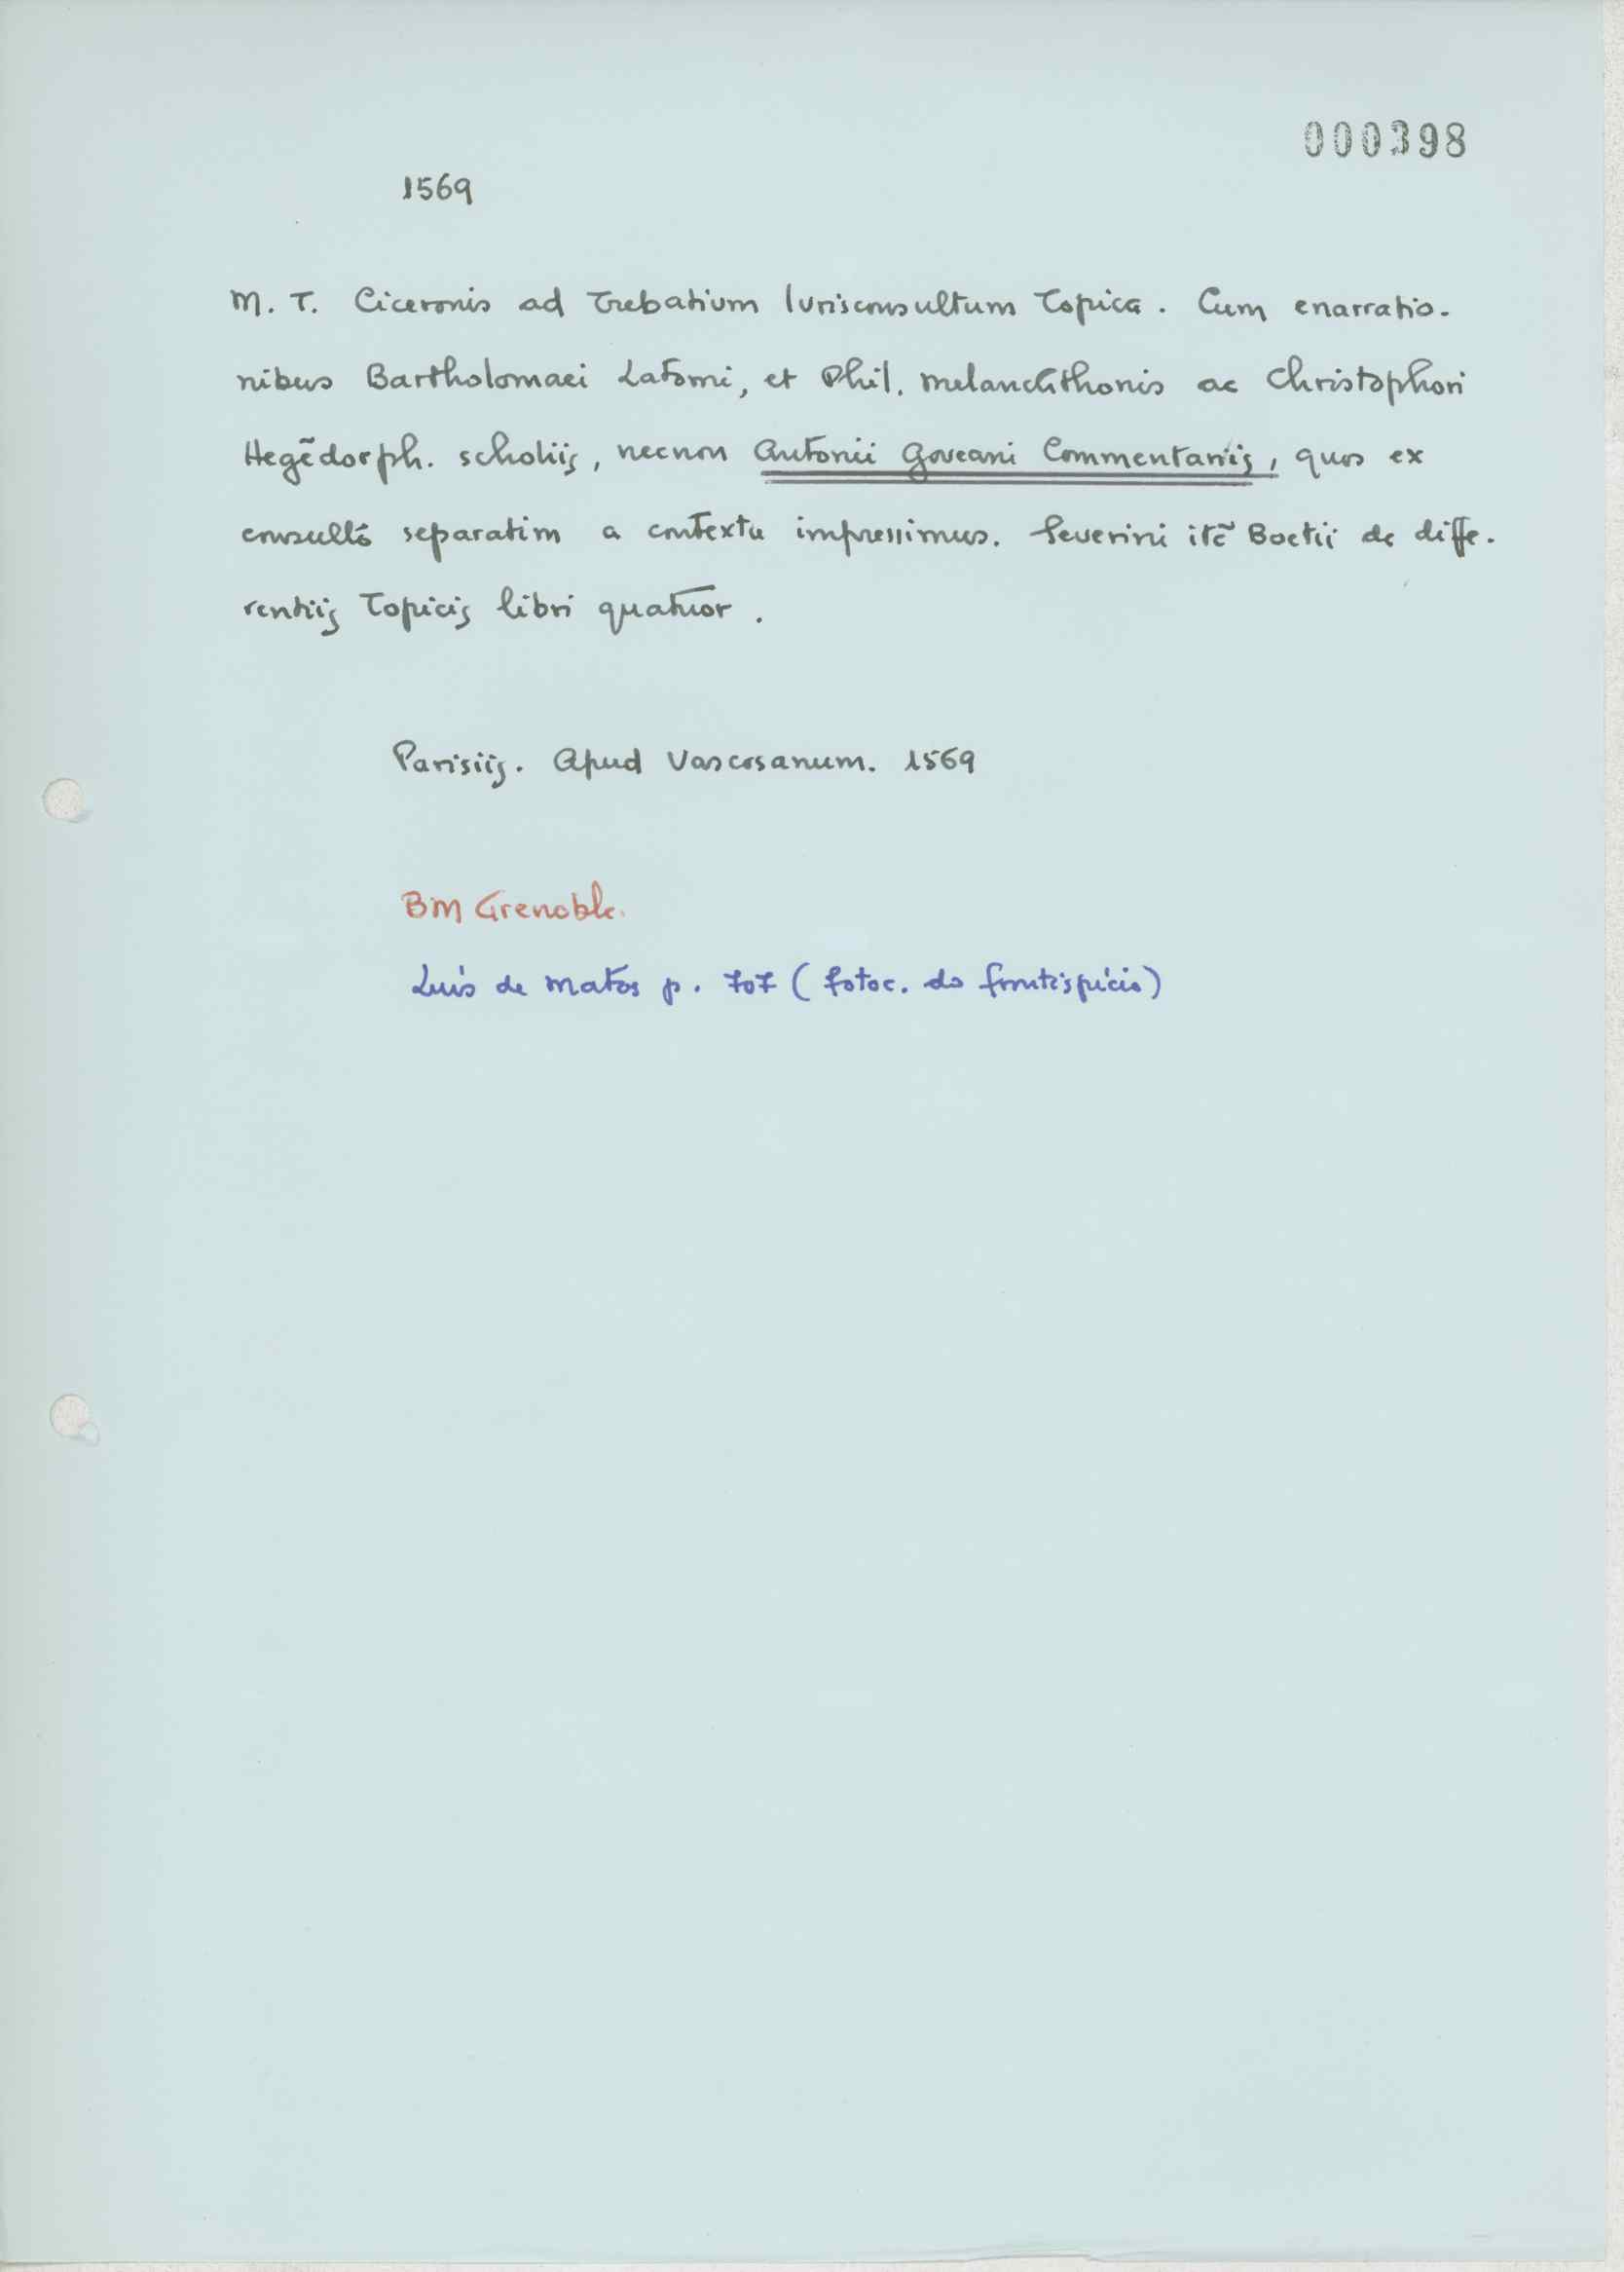 000398
1569
M. T. Ciceronis ad Trebatium Iurisconsultum Topica. Cum enarratio-
nibus Bartholomaei Latomi, et Phil. Melanchthonis ac Christophori
Hegẽdorph. scholiis, necnon Antonii Goveani Commentariis, quos ex
consultò separatim a contextu impressimus. Severini itẽ Boetii de diffe-
rentiis Topicis libri quatuor.
Parisiis. Apud Vascosanum. 1569
BM Grenoble.
Luís de Matos p. 707 (fotoc. do frontispício)